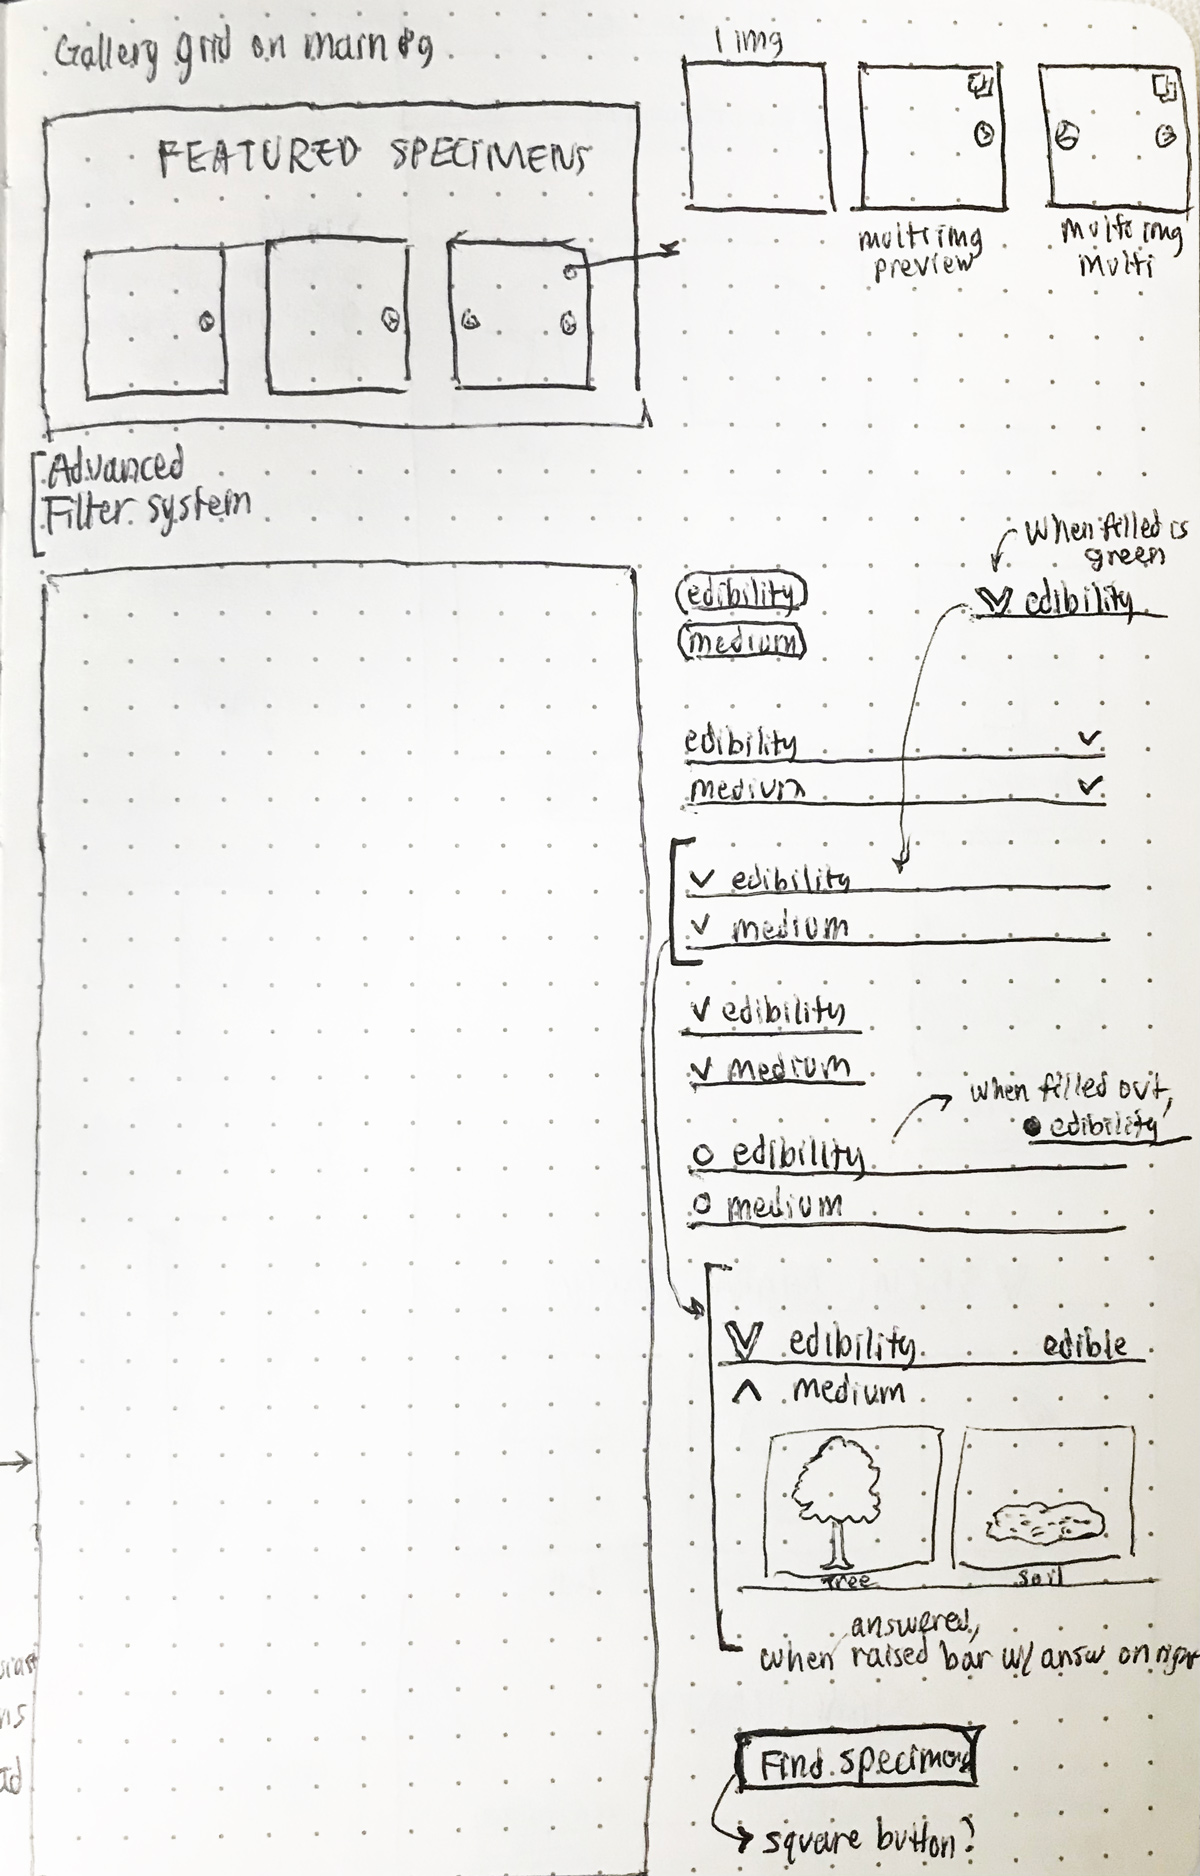 Gallery grid on main pg
1 img
FEATURED SPECIMENS
multi img
preview
multi img
multi
Advanced
Filter system
When filled is
green
edibility
edibility
medium
edibility
medium
edibility
medium
edibility
medium
when filled out,
edibility
edibility
medium
edibility edible
medium
Tree soil
answered,
when raised bar w/ answ on
Find specimens
square button?